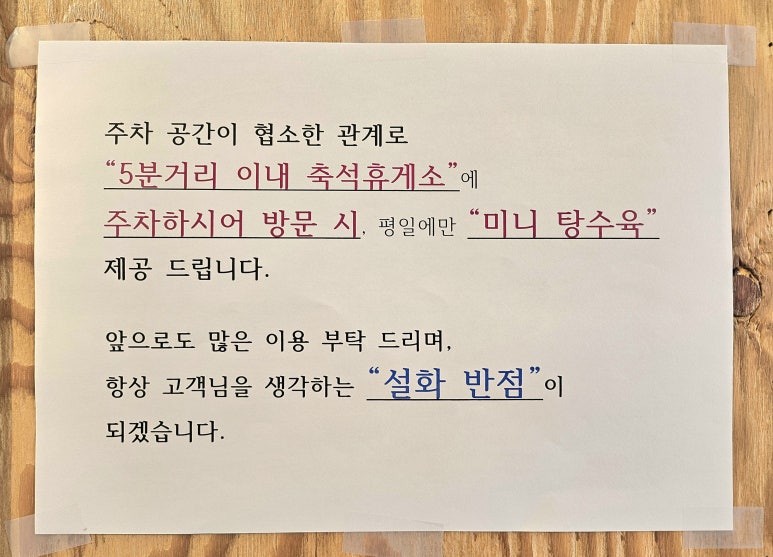 주차 공간이 협소한 관계로
“5분거리 이내 축석휴게소”에
주차하시어 방문 시, 평일에만 “미니 탕수육”
제공 드립니다.
앞으로도 많은 이용 부탁 드리며,
항상 고객님을 생각하는 “설화 반점”이
되겠습니다.